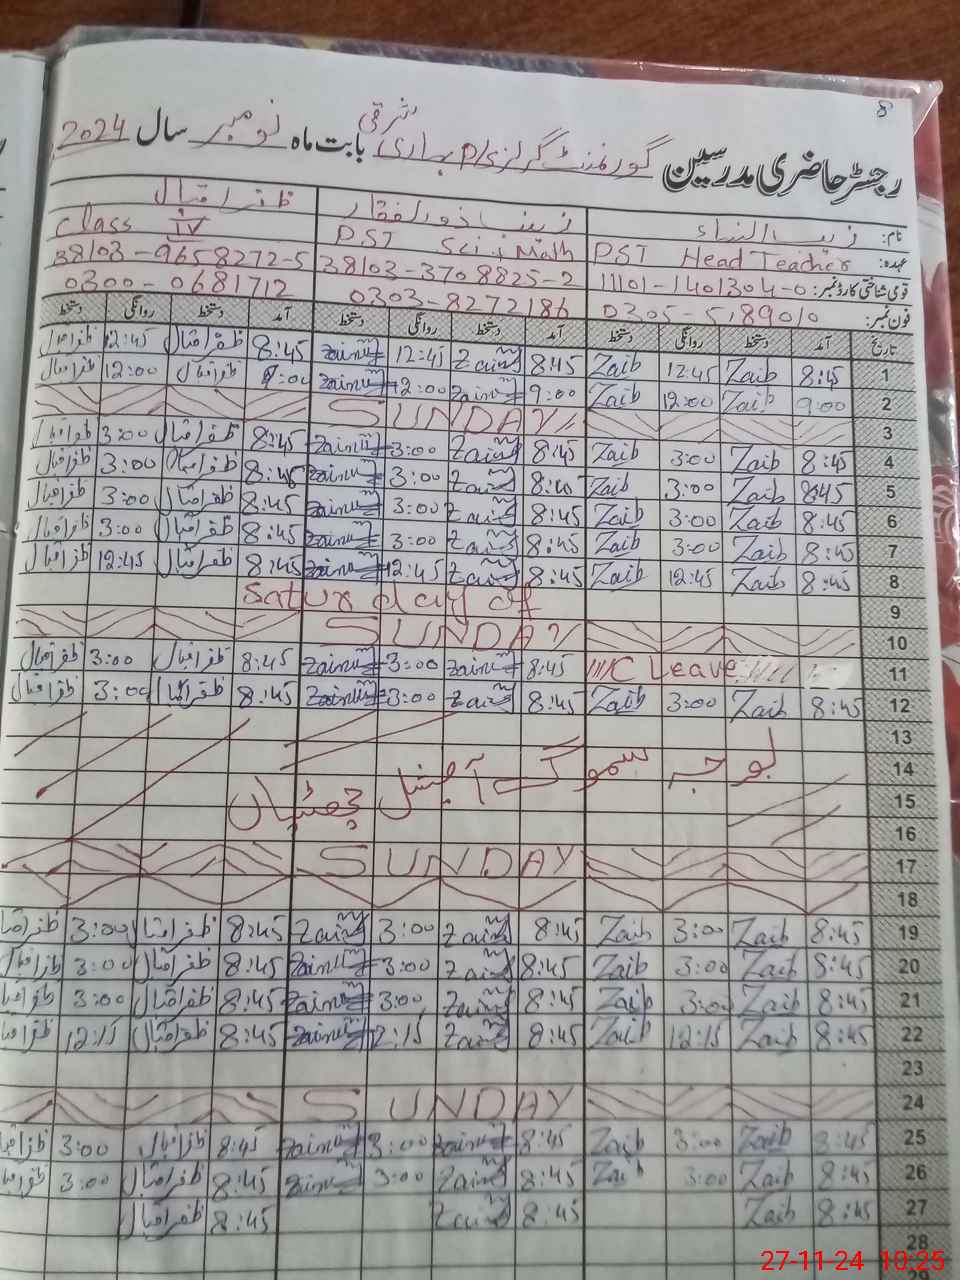 8
رجسٹر حاضری مدرسین گورنمنٹ گرلز P/S بہاری شرقی بابت ماہ نومبر سال 2024
نام: زیب النساء زینب ذوالفقار ظفر اقبال
عہدہ: PST Head Teacher PST Sci + Math Class IV
قومی شناختی کارڈ نمبر: 11101-1401304-0 38103-3708825-2 38103-9658272-5
فون نمبر: 0305-5189010 0303-8272186 0300-0681712
تاریخ آمد دستخط روانگی دستخط آمد دستخط روانگی دستخط آمد دستخط روانگی دستخط
1 8:45 Zaib 12:45 Zaib 8:45 Zainab 12:45 Zainab 8:45 ظفر اقبال 12:45 ظفر اقبال
2 9:00 Zaib 12:00 Zaib 9:00 Zainab 12:00 Zainab 9:00 ظفر اقبال 12:00 ظفر اقبال
3 SUNDAY
4 8:45 Zaib 3:00 Zaib 8:45 Zainab 3:00 Zainab 8:45 ظفر اقبال 3:00 ظفر اقبال
5 8:45 Zaib 3:00 Zaib 8:45 Zainab 3:00 Zainab 8:45 ظفر اقبال 3:00 ظفر اقبال
6 8:45 Zaib 3:00 Zaib 8:45 Zainab 3:00 Zainab 8:45 ظفر اقبال 3:00 ظفر اقبال
7 8:45 Zaib 3:00 Zaib 8:45 Zainab 3:00 Zainab 8:45 ظفر اقبال 3:00 ظفر اقبال
8 8:45 Zaib 12:45 Zaib 8:45 Zainab 12:45 Zainab 8:45 ظفر اقبال 12:45 ظفر اقبال
9 Saturday of
10 SUNDAY
11 C Leave 8:45 Zainab 3:00 Zainab 8:45 ظفر اقبال 3:00 ظفر اقبال
12 8:45 Zaib 3:00 Zaib 8:45 Zainab 3:00 Zainab 8:45 ظفر اقبال 3:00 ظفر اقبال
13
14 بوجہ سموگ سپیشل چھٹیاں
15
16
17 SUNDAY
18
19 8:45 Zaib 3:00 Zaib 8:45 Zainab 3:00 Zainab 8:45 ظفر اقبال 3:00 ظفر اقبال
20 8:45 Zaib 3:00 Zaib 8:45 Zainab 3:00 Zainab 8:45 ظفر اقبال 3:00 ظفر اقبال
21 8:45 Zaib 3:00 Zaib 8:45 Zainab 3:00 Zainab 8:45 ظفر اقبال 3:00 ظفر اقبال
22 8:45 Zaib 12:15 Zaib 8:45 Zainab 12:15 Zainab 8:45 ظفر اقبال 12:15 ظفر اقبال
23
24 SUNDAY
25 8:45 Zaib 3:00 Zaib 8:45 Zainab 3:00 Zainab 8:45 ظفر اقبال 3:00 ظفر اقبال
26 8:45 Zaib 3:00 Zaib 8:45 Zainab 3:00 Zainab 8:45 ظفر اقبال 3:00 ظفر اقبال
27 8:45 Zaib 8:45 Zainab 8:45 ظفر اقبال
28
27-11-24 10:25